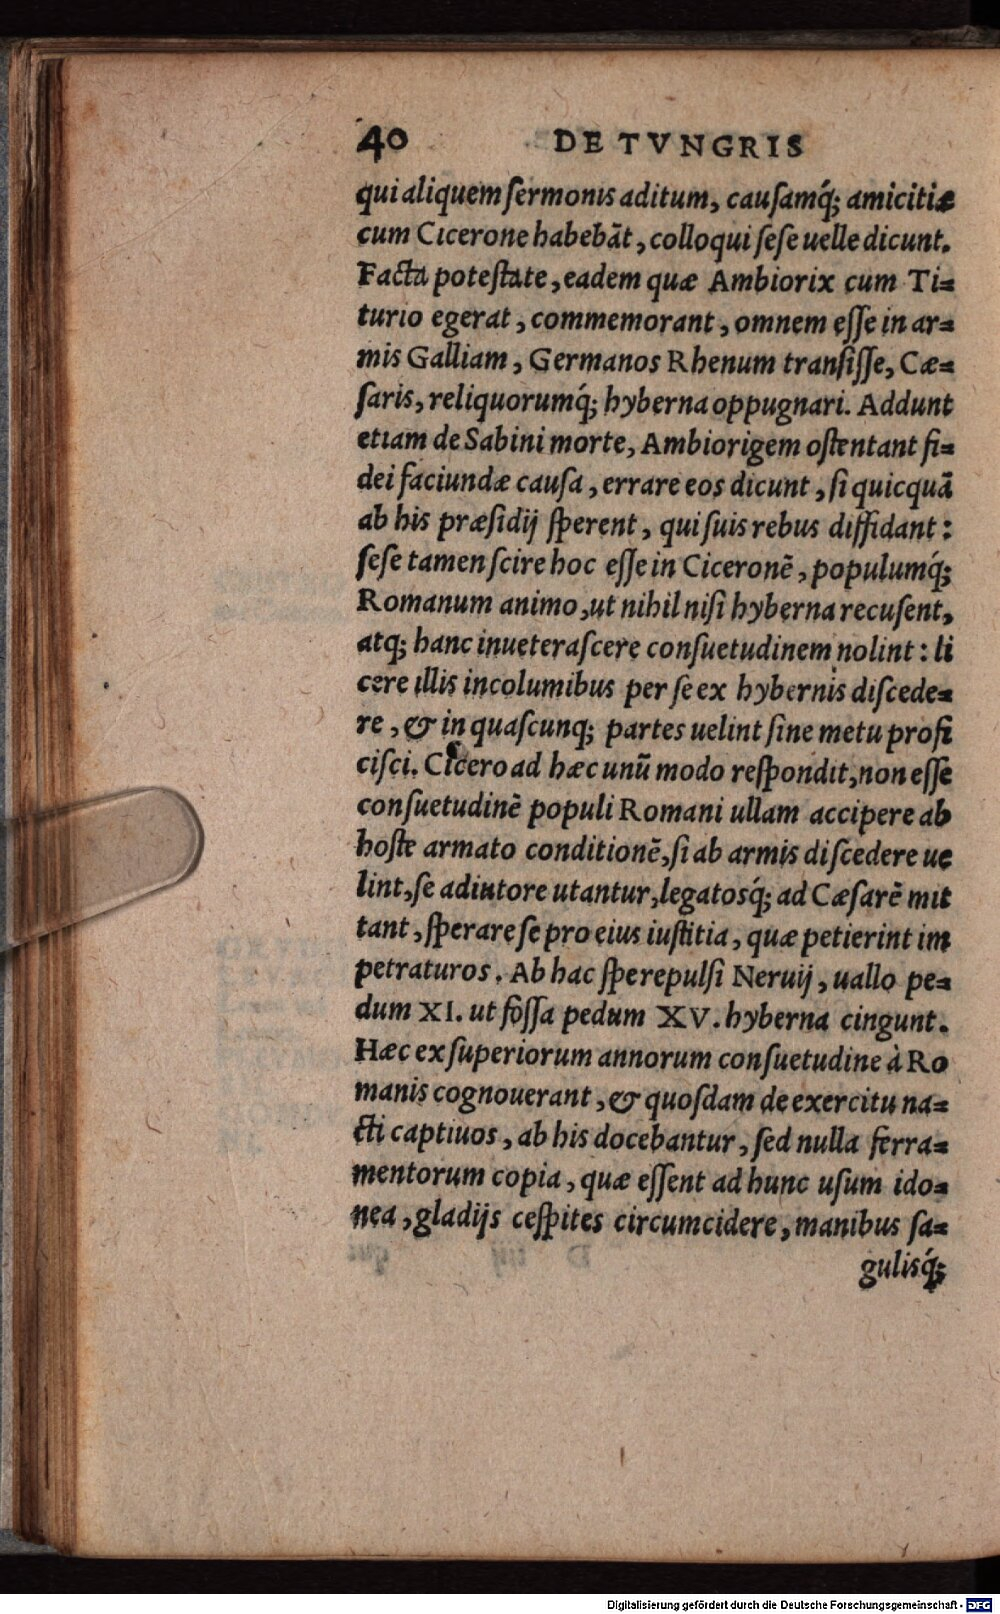 40 DE TVNGRIS
qui aliquem ſermonis aditum, cauſamq́; amicitiæ
cum Cicerone habebāt, colloqui ſeſe uelle dicunt.
Facta poteſtate, eadem quæ Ambiorix cum Ti=
turio egerat, commemorant, omnem eſſe in ar=
mis Galliam, Germanos Rhenum tranſiſſe, Cæ=
ſaris, reliquorumq́; hyberna oppugnari. Addunt
etiam de Sabini morte, Ambiorigem oſtentant fi=
dei faciundæ cauſa, errare eos dicunt, ſi quicquā
ab his præſidij ſperent, qui ſuis rebus diffidant:
ſeſe tamen ſcire hoc eſſe in Ciceronē, populumq́;
Romanum animo, ut nihil niſi hyberna recuſent,
atq; hanc inueteraſcere conſuetudinem nolint: li
cere illis incolumibus per ſe ex hybernis diſcede=
re, & in quaſcunq; partes uelint ſine metu profi
ciſci. Cicero ad hæc unū modo reſpondit, non eſſe
conſuetudinē populi Romani ullam accipere ab
hoſte armato conditionē, ſi ab armis diſcedere ue
lint, ſe adiutore utantur, legatosq́; ad Cæſarē mit
tant, ſperare ſe pro eius iuſtitia, quæ petierint im
petraturos. Ab hac ſpe repulſi Neruij, uallo pe=
dum XI. ut foſſa pedum XV. hyberna cingunt.
Hæc ex ſuperiorum annorum conſuetudine à Ro
manis cognouerant, & quoſdam de exercitu na=
cti captiuos, ab his docebantur, ſed nulla ferra=
mentorum copia, quæ eſſent ad hunc uſum ido=
nea, gladijs ceſpites circumcidere, manibus ſa=
gulisq́;
Digitalisierung gefördert durch die Deutsche Forschungsgemeinschaft - DFG